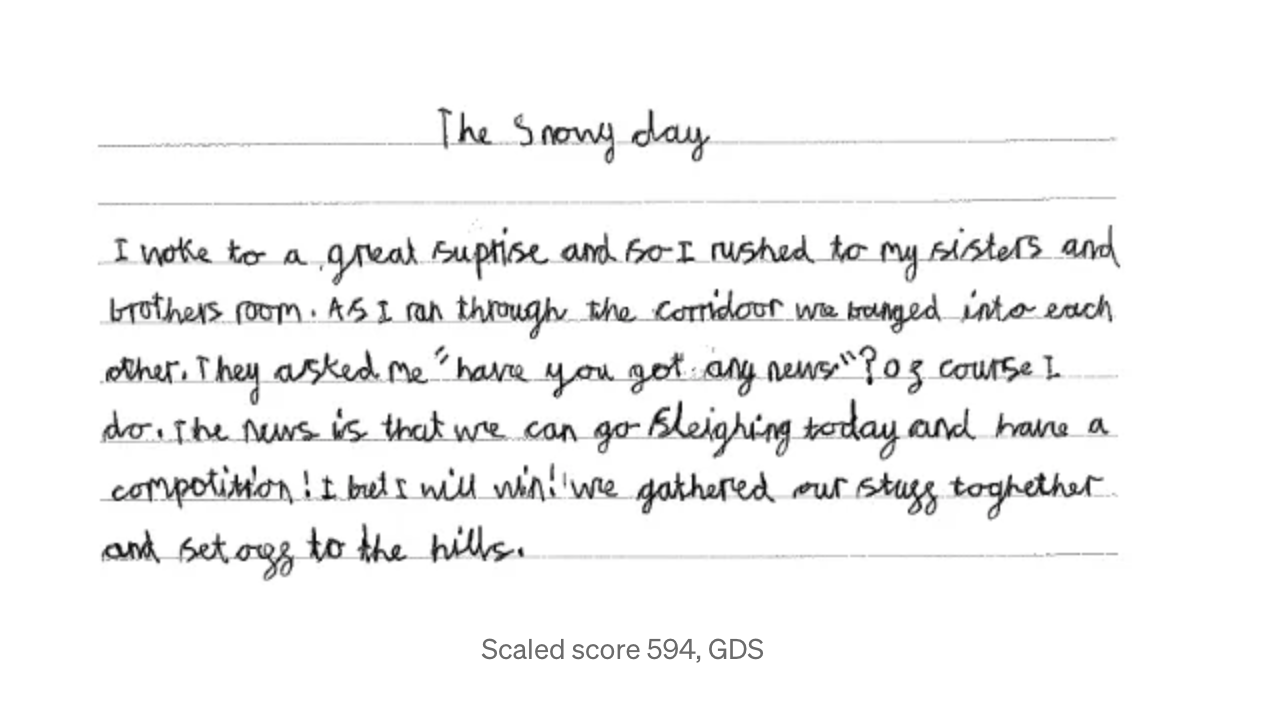 The Snowy day
I woke to a great suprise and so I rushed to my sisters and
brothers room. As I ran through the corridoor we banged into each
other. They asked me "have you got any news"? of course I
do. The news is that we can go sleighing today and have a
compotition! I bet I will win!" we gathered our stuff toghether
and set off to the hills.
Scaled score 594, GDS